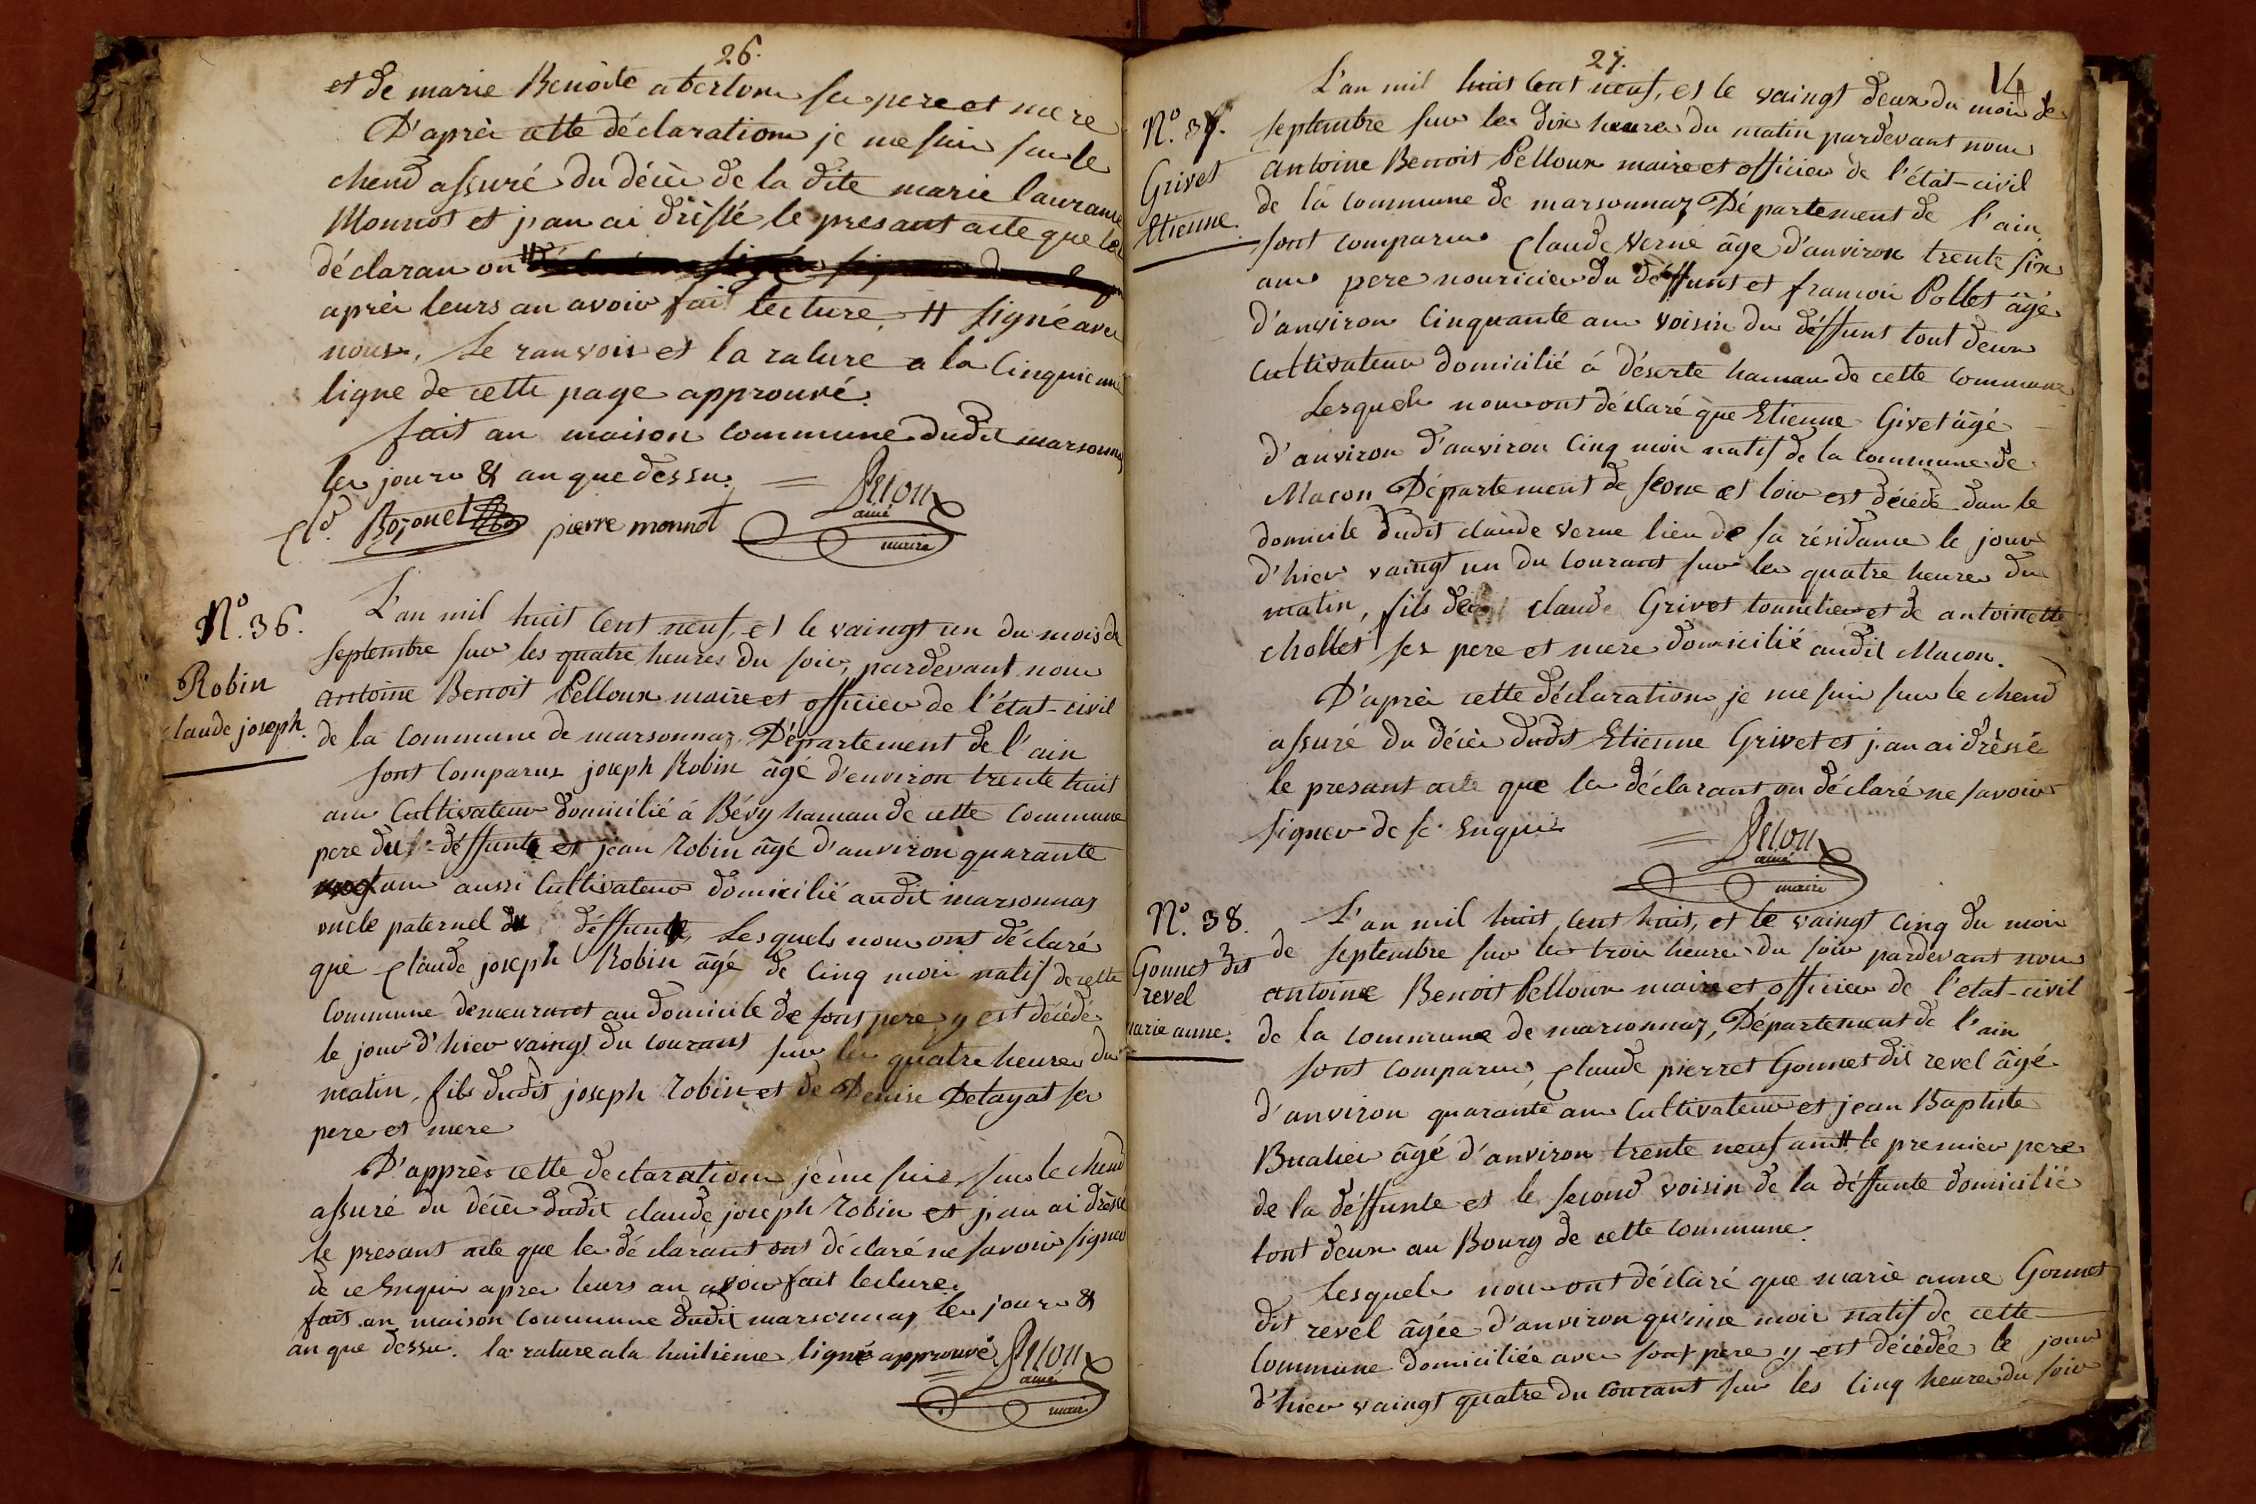 26.
et de marie Benoite aberton ses pere et mere
D'après cette déclaration je me suis sur le
chend assuré du décès de la dite marie laurance
Monnot et j'an ai drèssé le presant acte que les
déclaran on #
après leurs an avoir fait lecture, # signé avec
nous. Le ranvois et la rature a la Cinquieme
ligne de cette page approuvé.
fait an maison commune dudit marsonnas
les jour & an que dessus.
Cld. Bozonet pierre monnot Pellou
ainé
maire
N.º 36.
Robin
Claude joseph.
L'an mil huit Cent neuf, et le vaingt un du mois de
septembre sur les quatre heures du soir, pardevant nous
antoine Benoit Pelloux maire et officier de l'état-civil
de la Commune de marsonnaz, Département de l'ain
sont Comparus joseph Robin âgé d'environ trente huit
ans Cultivateur domicilié á Bévy haman de cette Commune
pere du déffunt et jean Robin âgé d'anviron quarante
ans aussi Cultivateur domicilié audit marsonnas
oncle paternel du déffunt, Lesquels nous ont déclaré
que Claude joseph Robin âgé de Cinq mois natif de cette
Commune demeurant au domicile de sont pere, y est décédé
le jour d'hier vaingt du courant sur les quatre heures du
matin, fils dudit joseph Robin et de Denise Delayat ses
pere et mere
D'apprès cette declaration, je me suis sur le chend
assuré du décès dudit claude joseph Robin et j'an ai drèssé
le presant acte que les déclarant ont déclaré ne savoir signer
de ce Enquis apres leurs an avoir fait lecture.
fait an maison Commune dudit marsonnaz les jour &
an que dessus. la rature a la huitieme ligne approuvé Pellou
ainé
maire
27.
14
N.º 37.
Grivet
Etienne.
L'an mil huit Cent neuf, et le vaingt deux du mois de
septembre sur les dix heures du matin pardevant nous
antoine Benoit Pelloux maire et officier de l'état-civil
de la Commune de marsonnaz Département de l'ain
sont comparus Claude Verne âge d'anviron trente six
ans pere nouricier du déffunt et francois Pollet âgé
d'anviron Cinquante ans voisin du déffunt tout deux
Cultivateur domicilié á déserte haman de cette commune
Lesquels nous ont déclaré que Etienne Givet âgé
d'anviron d'anviron Cinq mois natif de la Commune de
Macon Département de seone et loir est décédé dans le
domicile dudit claude Verne lieu de sa résidance le jour
d'hier vaingt un du Courant sur les quatre heures du
matin, fils de claude Grivet tounelier et de antoinette
chollet ses pere et mere domicilié audit Macon.
D'après cette déclaration, je me suis sur le chend
assuré du décès dudit Etienne Grivet et j'an ai drèssé
le presant acte que les déclarant on déclaré ne savoir
signer de se Enquis
Pellou
ainé
maire
N.º 38.
Gonnet dit
revel
marie anne.
L'an mil huit cent huit, et le vaingt cinq du mois
de septembre sur les trois heures du soir pardevant nous
antoine Benoit Pelloux maire et officier de l'etat-civil
de la commune de marsonnaz, Département de l'ain
sont Comparus, Claude pierret Gonnet dit revel âgé
d'anviron quarante ans Cultivateur et jean Baptiste
Bualier âgé d'anviron trente neuf ans # le premier pere
de la déffunte et le second voisin de la déffunte domicilié
tout deux au Bourg de cette commune.
Lesquels nous ont déclaré que marie anne Gonnet
dit revel âgée d'anviron quinse mois natif de cette
Commune domiciliée avec sont pere y est décédée le jour
d'hier vaingt quatre du courant sur les Cinq heures du soir